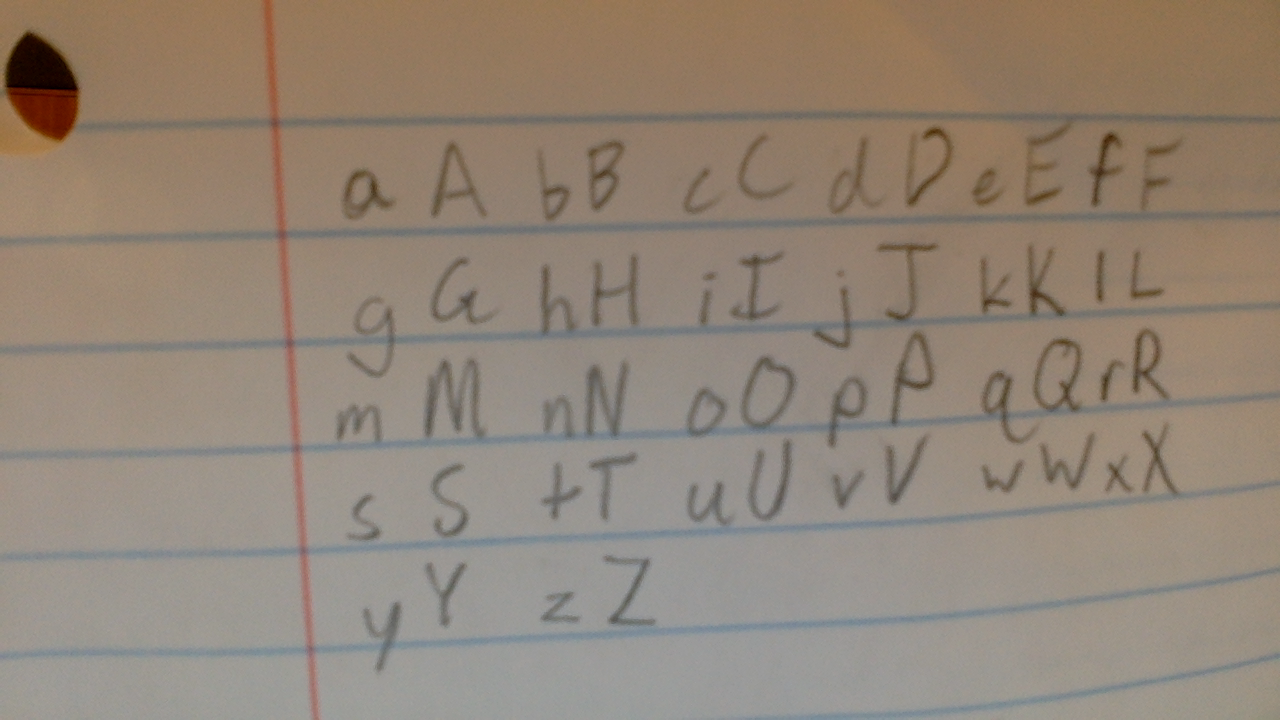 a A bB cC dD eE fF
g G hH iI jJ kK lL
m M nN oO pP qQ rR
s S tT uU vV wW xX
yY zZ